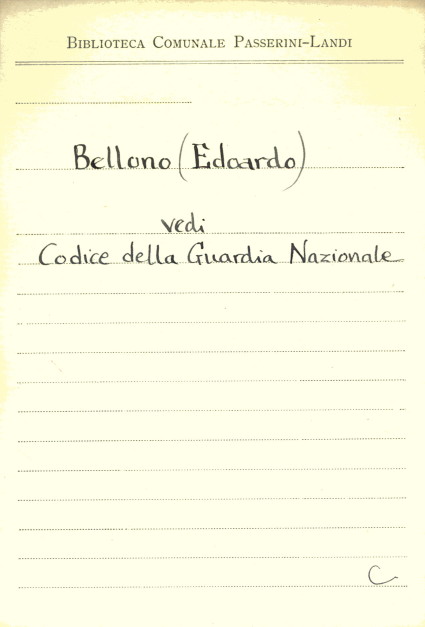 Biblioteca Comunale Passerini-Landi
Bellono (Edoardo)
vedi
Codice della Guardia Nazionale
C